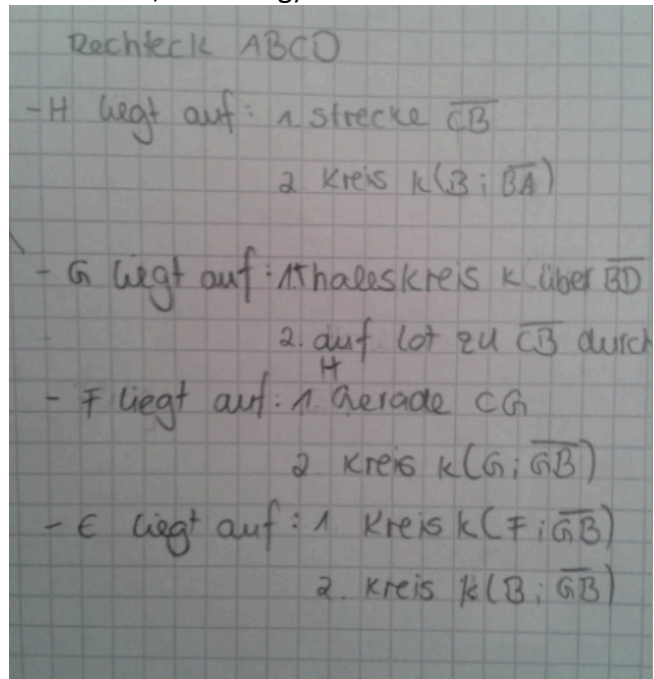 Rechteck ABCD
- H liegt auf: 1. Strecke C̅B̅
2 Kreis k(B; B̅A̅)
- G liegt auf: 1. Thaleskreis k über B̅D̅
2. auf Lot zu C̅B̅ durch
H
- F liegt auf: 1. Gerade CG
2 Kreis k(G; G̅B̅)
- E liegt auf: 1. Kreis k(F; G̅B̅)
2. Kreis k(B; G̅B̅)